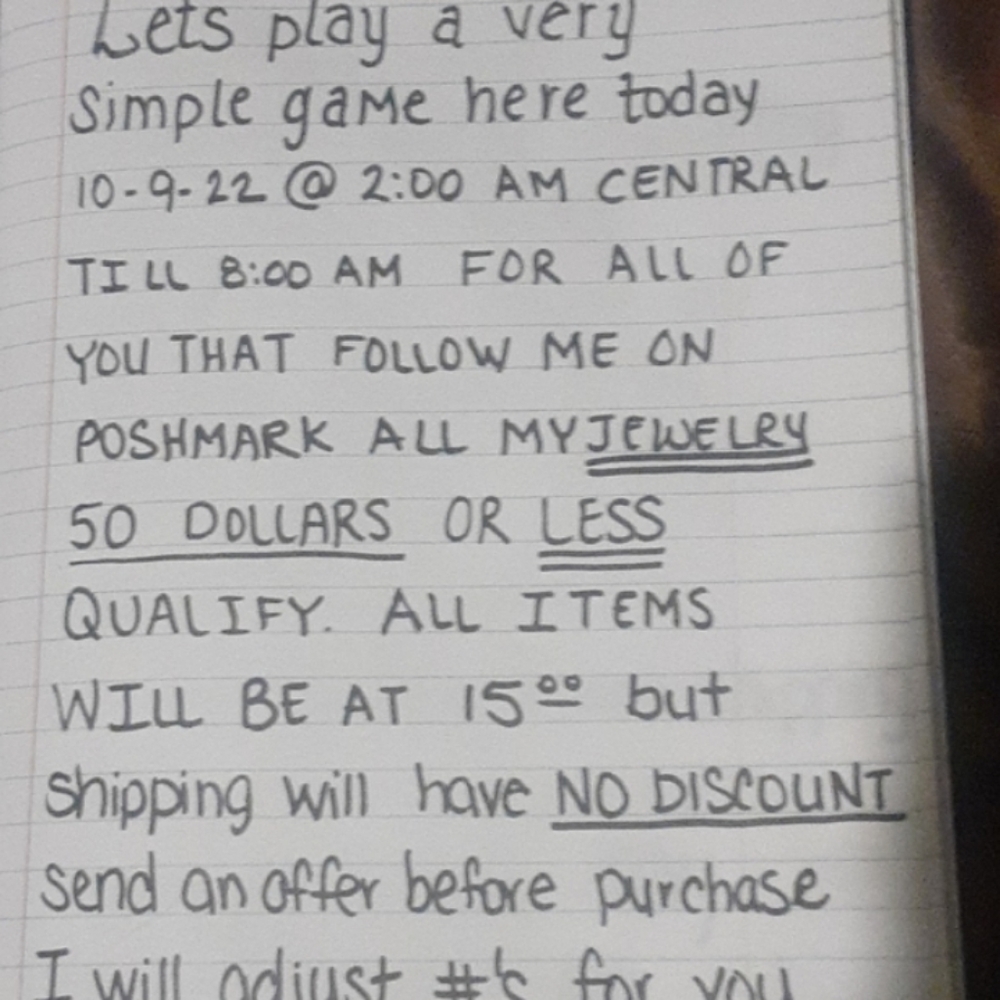 Lets play a very
Simple game here today
10-9-22 @ 2:00 AM CENTRAL
TILL 8:00 AM FOR ALL OF
YOU THAT FOLLOW ME ON
POSHMARK ALL MY JEWELRY
50 DOLLARS OR LESS
QUALIFY. ALL ITEMS
WILL BE AT 15⁰⁰ but
shipping will have NO DISCOUNT
send an offer before purchase
I will adjust #'s for you